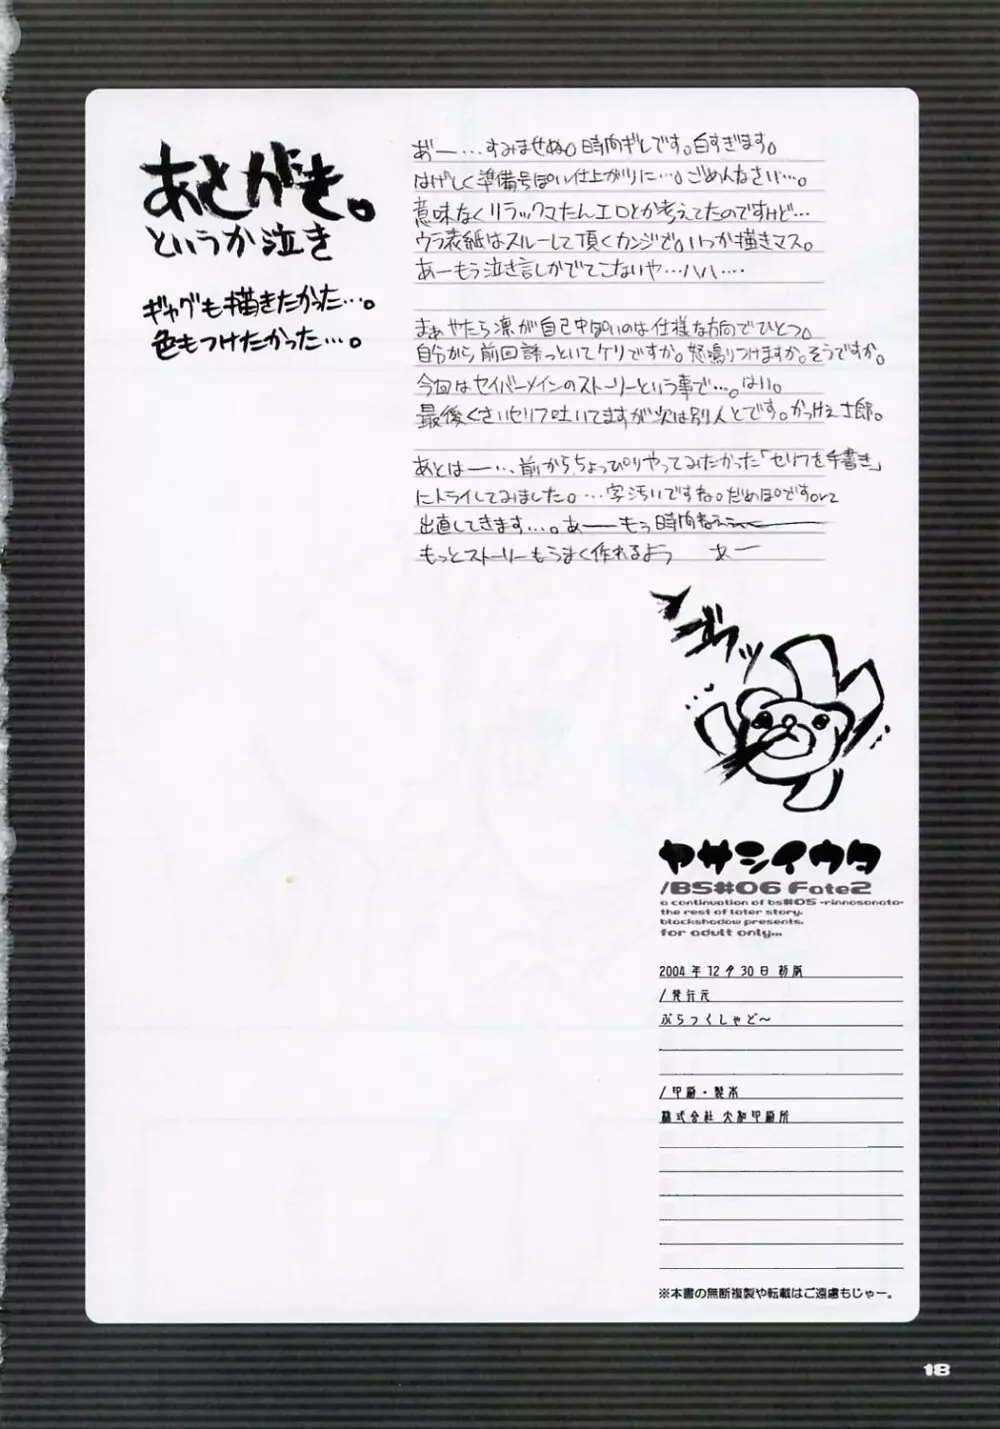 あとがき。
というか泣き
ギャグも描きたかった…。
色もつけたかった…。
あ゛ー…すみませぬ。時間ギレです。白すぎます。
はげしく準備号ぽい仕上がりに…。ごめんなさい…。
意味なくリラックマたんエロとか考えてたのですけど…
ウラ表紙はスルーして頂くカンジで。いつか描きマス。
あーもう泣き言しかでてこないや…ハハ…．
まぁやたら凛が自己中ぽいのは仕様な方向でひとつ。
自分から前回誘っといてケリですか。怒鳴りつけますか。そうですか。
今回はセイバーメインのストーリーという事で…。はい。
最後くさいセリフ吐いてますが次は別人とです。かっけぇ士郎。
あとはー…前からちょっぴりやってみたかった「セリフを手書き」
にトライしてみました。…字汚いですね。だめぽですorz
出直してきます…。あーーもう時間ねぇぇー
もっとストーリーもうまく作れるよう　あー
ヤサシイウタ
/BS#06 Fate2
a continuation of bs#05 -rinnosonata-
the rest of later story.
blackshadow presents.
for adult only...
2004年12月30日 初版
/発行元
ぶらっくしゃど〜
/印刷・製本
株式会社 大和印刷所
※本書の無断複製や転載はご遠慮もじゃー。
18